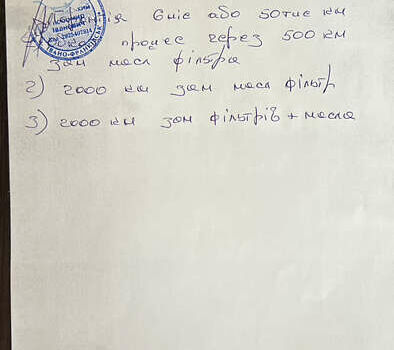 6 міс або 50 тис км
процес через 500 км
зам масл фільтра
2) 2000 км зам масл фільтр
3) 2000 км зам фільтрів + масла
ІВАНО-ФРАНКІВСЬК